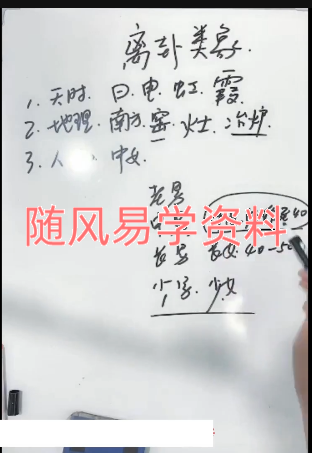 离卦类象.
1. 天时. 日. 电. 虹. 霞
2. 地理. 南方. 窑. 灶. 冶炉.
3. 人 中女
老男
随风易学资料
长男 长女. 40-50
少男. 少女